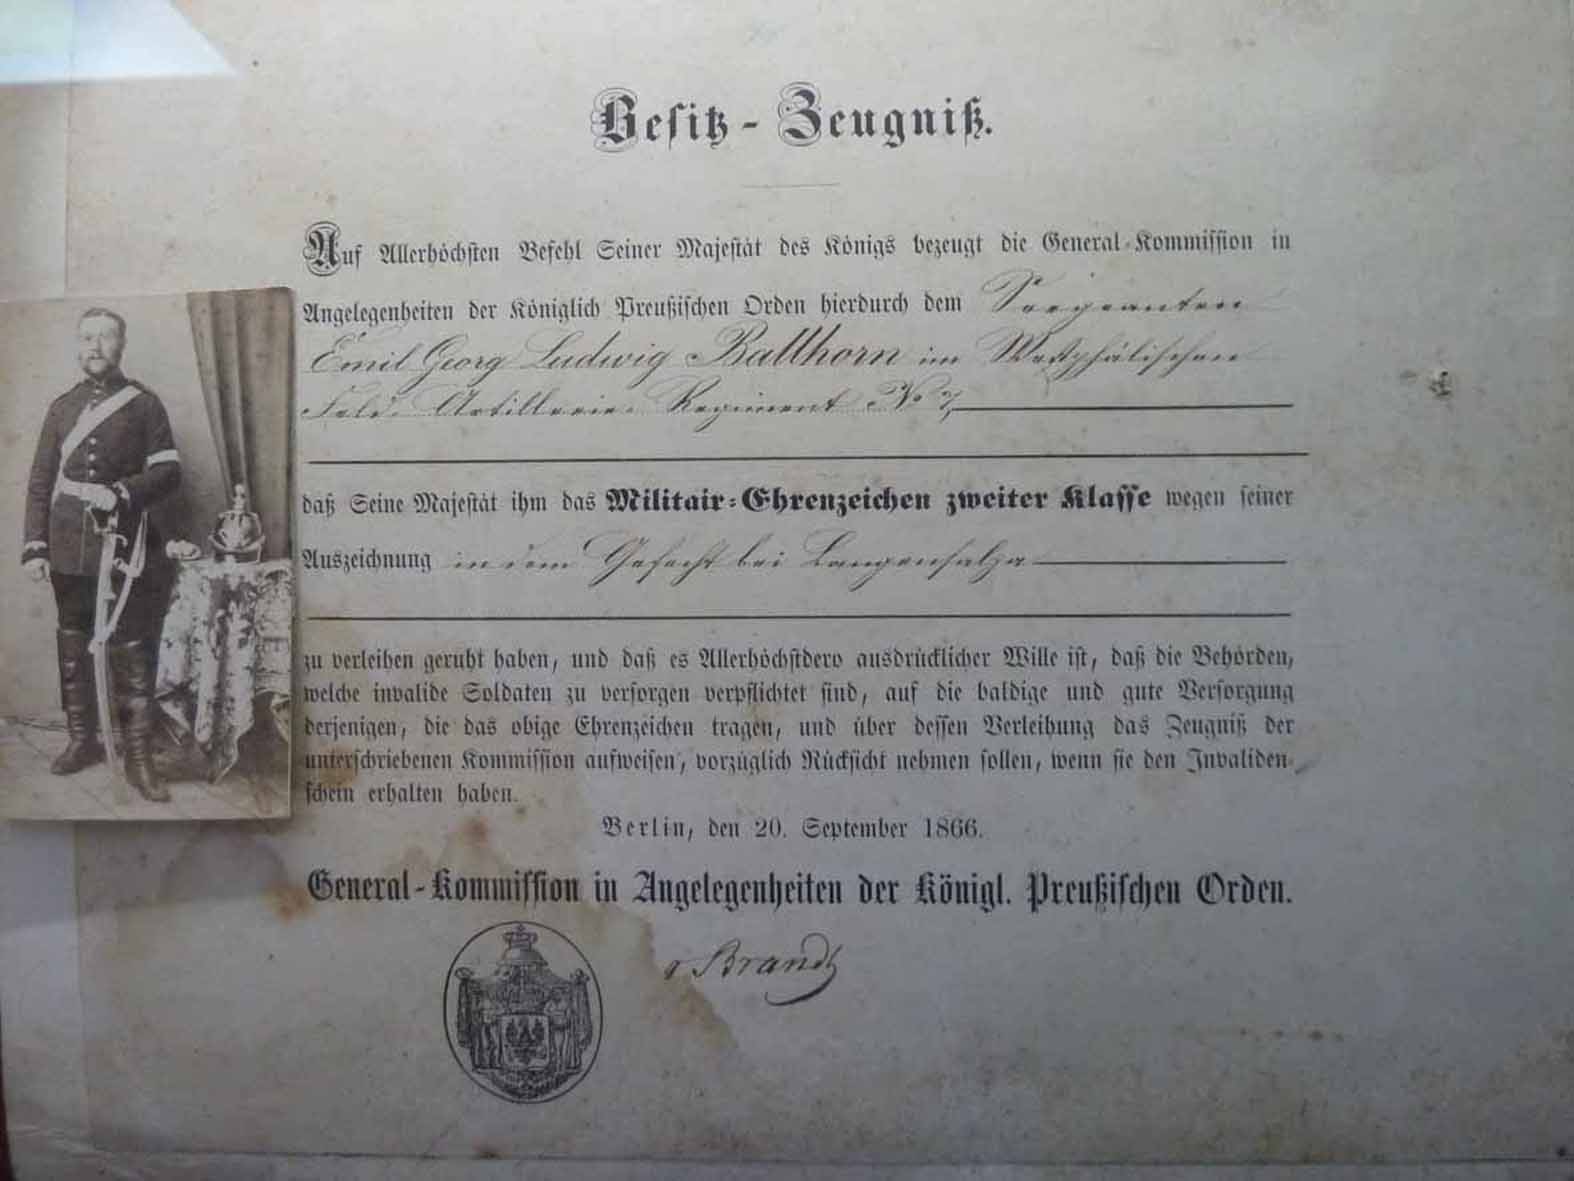 Besitz-Zeugniß.
Auf Allerhöchsten Befehl Seiner Majestät des Königs bezeugt die General-Kommission in
Angelegenheiten der Königlich Preußischen Orden hierdurch dem Sergeanten
Emil Georg Ludwig Ballhorn im Westphälischen
Feld-Artillerie-Regiment No 7,
daß Seine Majestät ihm das Militair-Ehrenzeichen zweiter Klasse wegen seiner
Auszeichnung in dem Gefecht bei Langensalza
zu verleihen geruht haben, und daß es Allerhöchstdero ausdrücklicher Wille ist, daß die Behörden,
welche invalide Soldaten zu versorgen verpflichtet sind, auf die baldige und gute Versorgung
derjenigen, die das obige Ehrenzeichen tragen, und über dessen Verleihung das Zeugniß der
unterschriebenen Kommission aufweisen, vorzüglich Rücksicht nehmen sollen, wenn sie den Invaliden-
schein erhalten haben.
Berlin, den 20. September 1866.
General-Kommission in Angelegenheiten der Königl. Preußischen Orden.
v Brandt